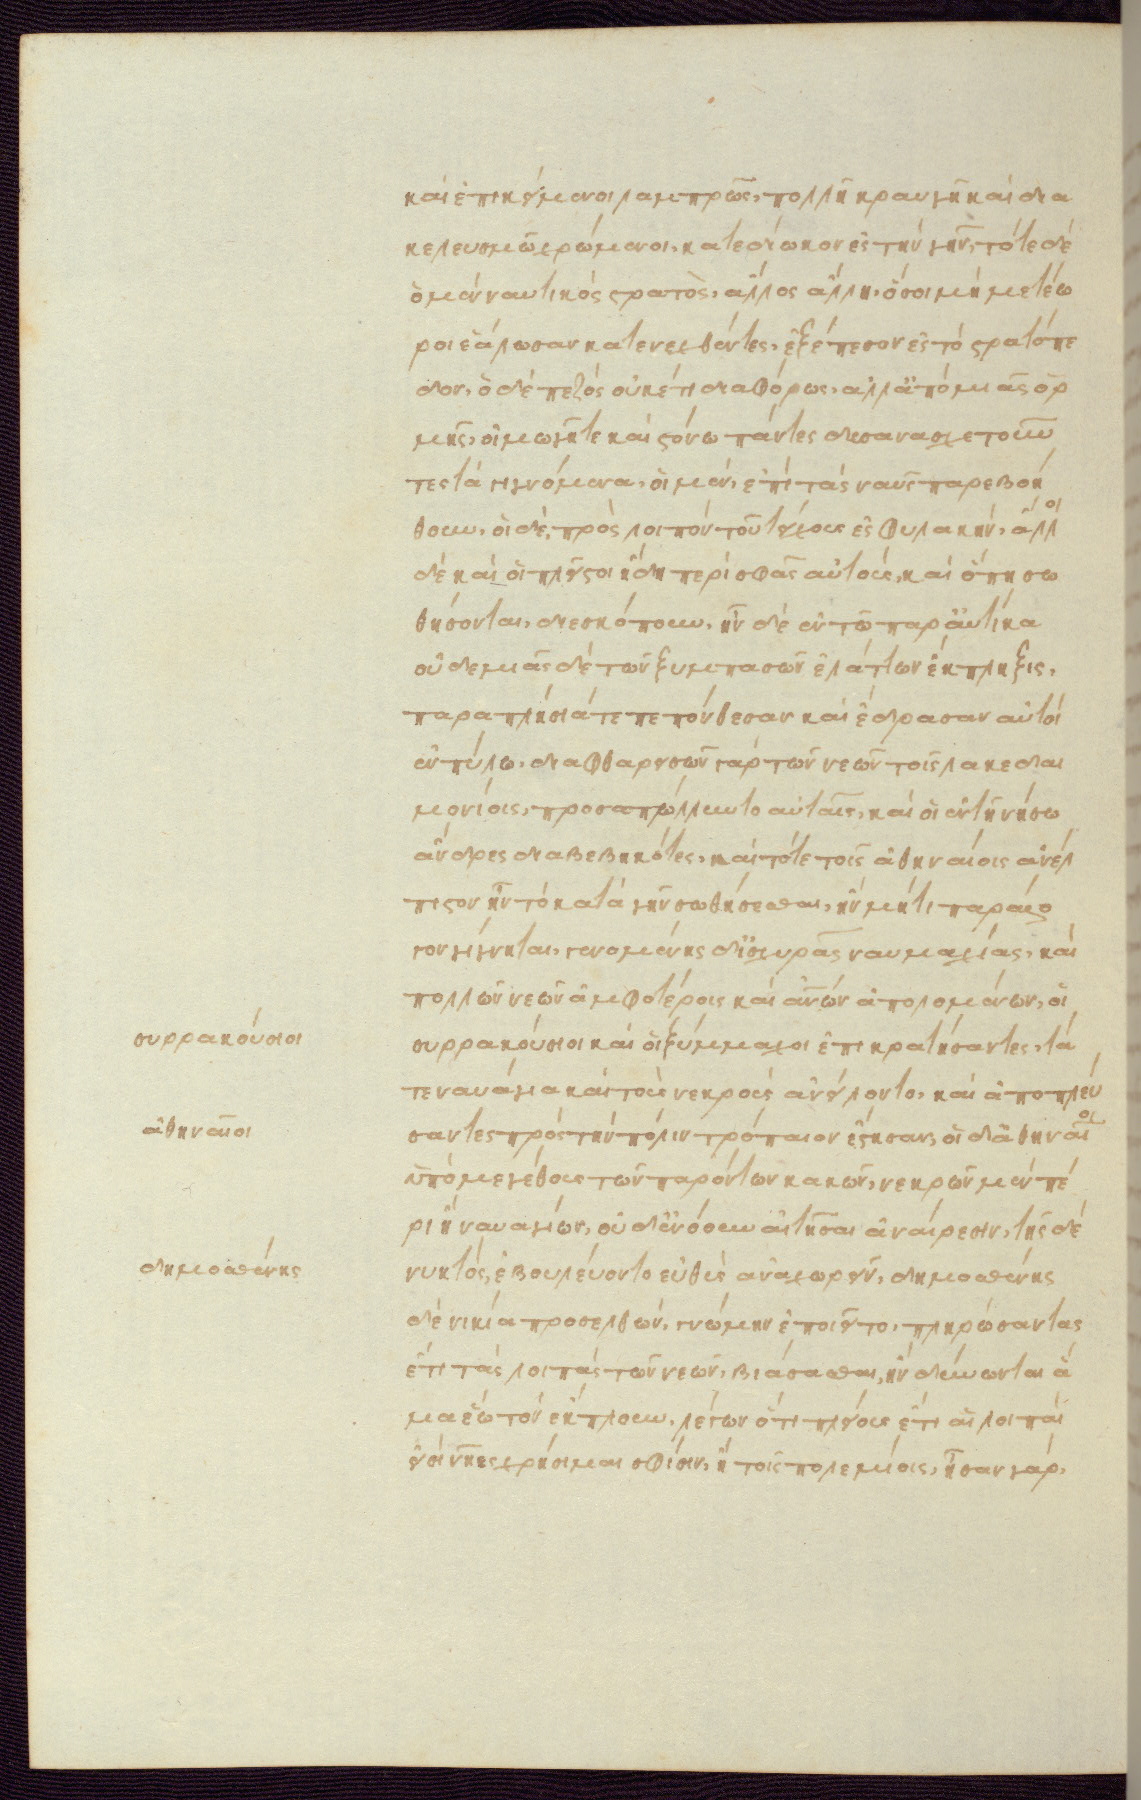 καὶ ἐπικείμενοι λαμπρῶς, πολλῆ κραυγῆ καὶ δια
κελευσμῶ χρώμενοι, κατεδίωκον ἐς τὴν γῆν, τότε δὲ
ὁ μὲν ναυτικὸς στρατὸς, ἄλλος ἄλλη, ὅσοι μὴ μετέω
ροι ἑάλωσαν κατενεχθέντες, ἐξέπεσον ἐς τὸ στρατόπε
δον, ὁ δὲ πεζὸς οὐκέτι διαφόρως, ἀλλ' ἀπὸ μιᾶς ὁρ
μῆς, οἰμωγῆ τε καὶ στόνω πάντες δυσανασχετοῦν
τες τὰ γιγνόμενα, οἱ μὲν, ἐπὶ τὰς ναῦς παρεβοή
θουν, οἱ δὲ, πρὸς λοιπὸν τοῦ τείχους ἐς φυλακὴν, ἄλλοι
δὲ καὶ οἱ πλεῖστοι ἤδη περὶ σφᾶς αὐτοὺς, καὶ ὅπη σω
θήσονται, διεσκόπουν, ἦν δὲ ἐν τῶ παραυτίκα
οὐδεμιᾶς δὲ τῶν ξυμπασῶν ἐλάττων ἔκπληξις,
παραπλήσιά τε πεπόνθεσαν καὶ ἔδρασαν αὐτοὶ
ἐν πύλω, διαφθαρεισῶν γὰρ τῶν νεῶν τοῖς λακεδαι
μονίοις, προσαπώλλυντο αὐταῖς, καὶ οἱ ἐν τῆ νήσω
ἄνδρες διαβεβηκότες, καὶ τότε τοῖς ἀθηναίοις ἀνέλ
πιστον ἦν τὸ κατὰ γῆν σωθήσεσθαι, ἢν μήτι παράλο
γον γίγνηται, γενομένης δ' ἰσχυρᾶς ναυμαχίας, καὶ
πολλῶν νεῶν ἀμφοτέροις καὶ ἀνων ἀπολομένων, οἱ
συρρακούσιοι καὶ οἱ ξύμμαχοι ἐπικρατήσαντες, τά
τε ναυάγια καὶ τοὺς νεκροὺς ἀνείλοντο, καὶ ἀποπλεύ
σαντες πρὸς τὴν πόλιν τρόπαιον ἔστησαν, οἱ δ' ἀθηναῖοι
ὑπὸ μεγέθους τῶν παρόντων κακῶν, νεκρῶν μὲν πέ
ρι ἢ ναυαγίων, οὐδ' ἐνόουν αἰτῆσαι ἀναίρεσιν, τῆς δὲ
νυκτὸς, ἐβουλεύοντο εὐθὺς ἀναχωρεῖν, δημοσθένης
δὲ νικία προσελθὼν, γνώμην ἐποιεῖτο, πληρώσαντας
ἔτι τὰς λοιπὰς τῶν νεῶν, βιάσασθαι, ἢν δύνωνται ἅ
μα ἕω τὸν ἔκπλουν, λέγων ὅτι πλείους ἔτι αἱ λοιπαί
εἰσι νῆες χρήσιμαι σφίσιν, ἢ τοῖς πολεμίοις, ἦσαν γὰρ,
συρρακούσιοι
ἀθηναῖοι
δημοσθένης